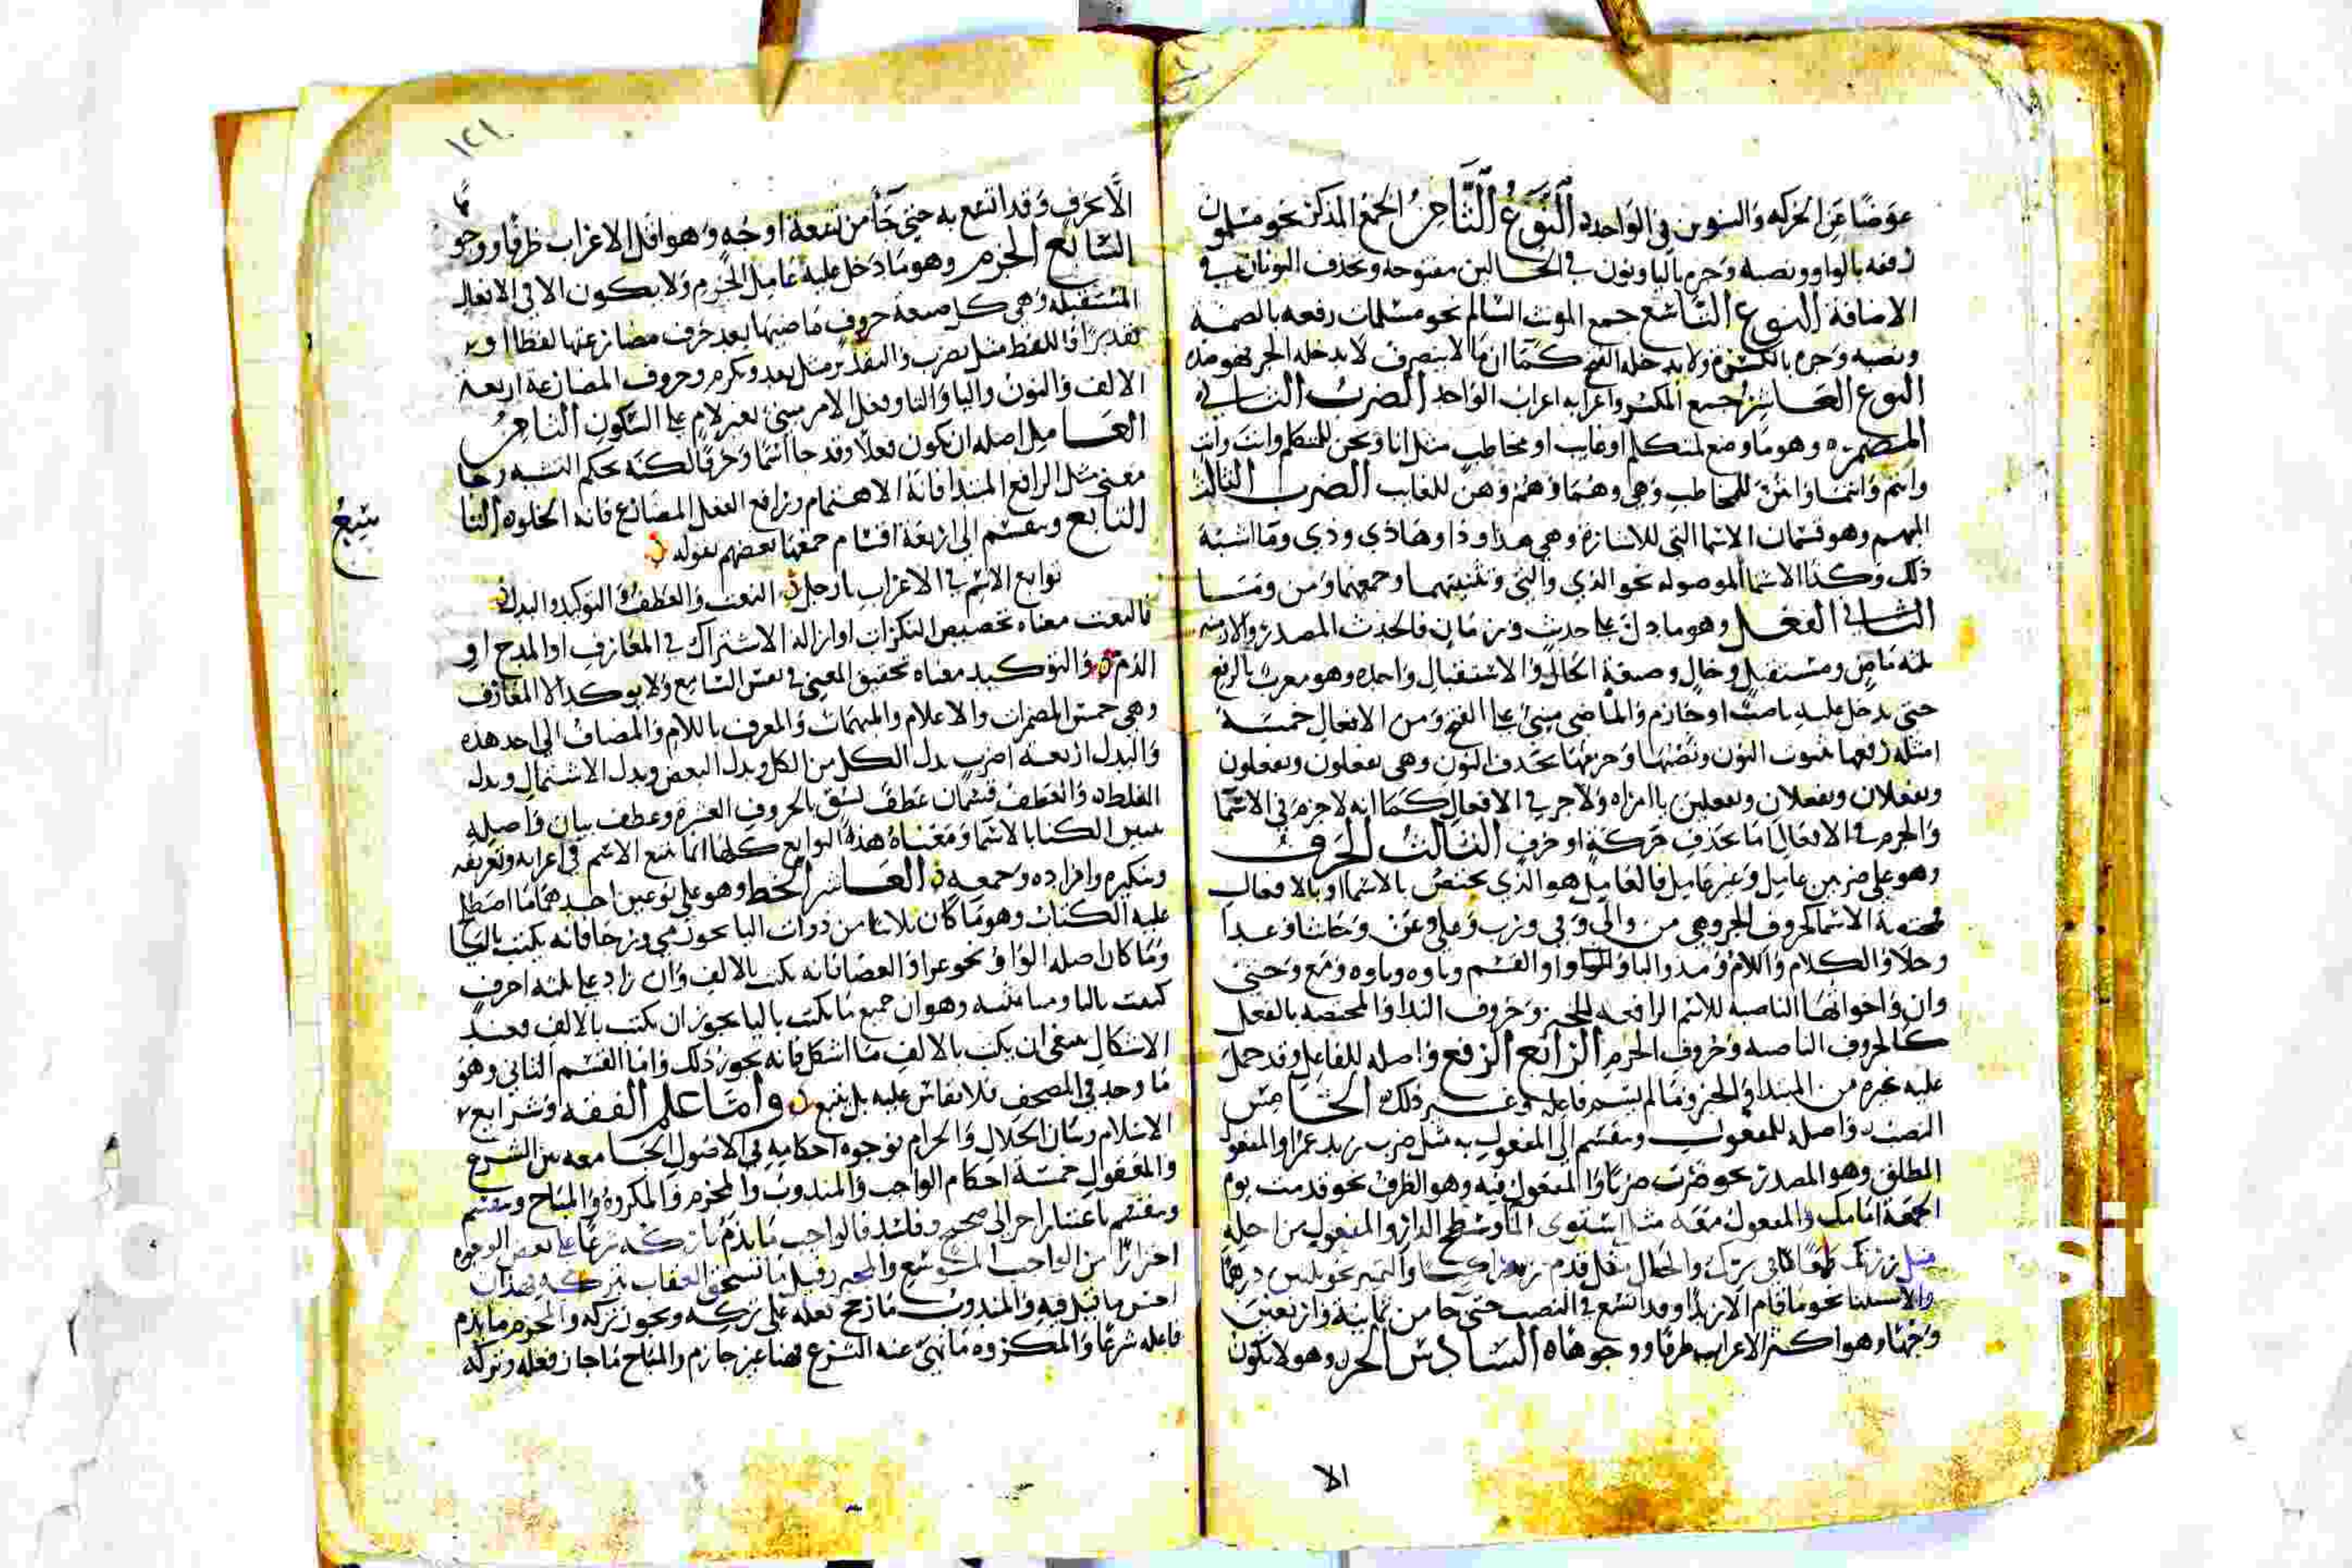 عوضًا عن الحركه والتنوين في الواحده النوع الثامن الجمع المذكر نحو مسلمون
رفعه بالواو ونصبه وجره باليا ونون في الحالين مفتوحه وتحذف النونان في
الاضافة النوع التاسع جمع المونث السالم نحو مسلمات رفعه بالضمة
ونصبه وجره بالكسرة ولا يدخله الفتح كما ان ما لا ينصرف لا يدخله الجر فهو ضده
النوع العاشر جمع المكسر واعرابه اعراب الواحد الضرب الثاني
المضمره وهو ما وضع لمتكلم او غايب او مخاطب مثل انا ونحن للمتكلم وانت وانت
وانتم وانتما وانتن للمخاطب وهي وهما وهم وهن للغايب الضرب الثالث
المبهم وهو قسمان الاسما التي للاشارة وهي هذا وذا وهاذي وذي وما اشبه
ذلك وكذا الاسما الموصوله نحو الذي والتي وتثنيتهما وجمعهما ومن وما
الثاني الفعل وهو ما دل على حدث وزمان فالحدث المصدر والازمنه
ثلثه ماض ومستقبل وحال وصيغة الحال والاستقبال واحده وهو معرب بالرفع
حتى يدخل عليه ناصب او جازم والماضي مبني على الفتح ومن الافعال خمسة
امثله رفعها بثبوت النون ونصبها وجزمها بحذف النون وهي تفعلون ويفعلون
وتفعلان ويفعلان وتفعلين يا امراه ولا جر في الافعال كما انه لا جزم في الاسما
والجزم في الافعال اما بحذف حركة او حرف الثالث الحرف
وهو على ضربين عامل وغير عامل فالعامل هو الذي يختص بالاسما او بالافعال
فمختصة الاسما كحروف الجر وهي من والى وفي ورب وعلى وعن وحاشا وعدا
وخلا والكاف واللام ومذ والبا وواو القسم وباوه وتاوه ومع وحتى
وان واخواتها الناصبه للاسم الرافعه للخبر وحروف الندا والمختصه بالفعل
كالحروف الناصبه وحروف الجزم الرابع الرفع واصله للفاعل وقد حمل
عليه غيره من المبتدا والخبر وما لم يسم فاعله وغير ذلك الخامس
النصب واصله للمفعول وينقسم الى المفعول به مثل ضرب زيد عمرا والمفعول
المطلق وهو المصدر نحو ضربت ضربًا والمفعول فيه وهو الظرف نحو قدمت يوم
الجمعة امامك والمفعول معه مثل استوى الما وسطح الدار والمفعول من اجله
مثل زرتك طمعًا في برك والحال مثل قدم زيد راكبًا والتمييز نحو عشرين درهمًا
والاستثنا نحو ما قام الا زيدًا وقد اتسع في النصب حتى جا من ثمانية واربعين
وجهًا وهو اكثر الاعراب ظرفا ووجوهاه السادس الجر وهو لا يكون
الا
١٢١
الا بحرف وقد اتسع به حتى جا من تسعة اوجه وهو اقل الاعراب ظرفا ووجوهًا
السابع الجزم وهو ما دخل عليه عامل الجزم ولا يكون الا في الافعال
المستقبله وهي كل صيغة حروف ماضيها بعد حرف مضارعتها لفظا او
تقديرًا فاللفظ مثل يضرب والتقدير مثل يعد ويكرم وحروف المضارعة اربعة
الالف والنون واليا والتا وفعل الامر مبني بغير لام على السكون الثامن
العامل اصله ان يكون فعلا وقد جا اسما وحرفا لكنه بحكم الشبه وجا
معنى مثل الرافع المبتدا فانه الاهتمام ورافع الفعل المضارع فانه الخلوه التا
سع
التابع وينقسم الى اربعة اقسام جمعها بعضهم بقوله
توابع الاسم في الاعراب يا رجل النعت والعطف والتوكيد والبدل
فالنعت معناه تخصيص النكرات او ازاله الاشتراك في المعارف او المدح او
الذم والتوكيد معناه تحقيق المعنى في نفس السامع ولا يوكد الا المعارف
وهي خمس المضمرات والاعلام والمبهمات والمعرف باللام والمضاف الى احد هذه
والبدل اربعة اضرب بدل الكل من الكل وبدل البعض وبدل الاشتمال وبدل
الغلط والعطف قسمان عطف نسق بالحروف العشره وعطف بيان واصله
تبيين الكنا بالاسما ومعناه هذه التوابع كلها انما تتبع الاسم في اعرابه وتعريفه
وتنكيره وافراده وجمعه العاشر الخط وهو على نوعين احدهما ما اصطلح
عليه الكتاب وهو ما كان ثلاثيا من ذوات اليا نحو رمى ورحا فانه يكتب باليا
وما كان اصله الواو نحو غزا والعصا فانه يكتب بالالف وان زاد على ثلثه احرف
كتبت باليا وهو ان جميع ما يكتب باليا يجوز ان يكتب بالالف وعند
الاشكال ينبغي ان يكتب بالالف ما اشكل فانه يجوز ذلك واما القسم الثاني وهو
ما وجد في المصحف فلا يقاس عليه بل يتبع واما علم الفقه وشرايع
الاسلام وبيان الحلال والحرام فوجوه احكامه في الاصول الجامعه بين الشرع
والمعقول خمسة احكام الواجب والمندوب والمحرم والمكروه والمباح وينقسم
وينقسم باعتبار اخر الى صحيح وفاسد فالواجب ما يذم تاركه شرعًا على بعض الوجوه
احترازًا من الواجب الموسع والمخير وقيل ما يستحق العقاب بتركه وهذان
احسن ما قيل فيه والمندوب ما رجح فعله على تركه ويجوز تركه والمحرم ما يذم
فاعله شرعًا والمكروه ما نهي عنه الشرع نهيا غير جازم والمباح ما جاز فعله وتركه